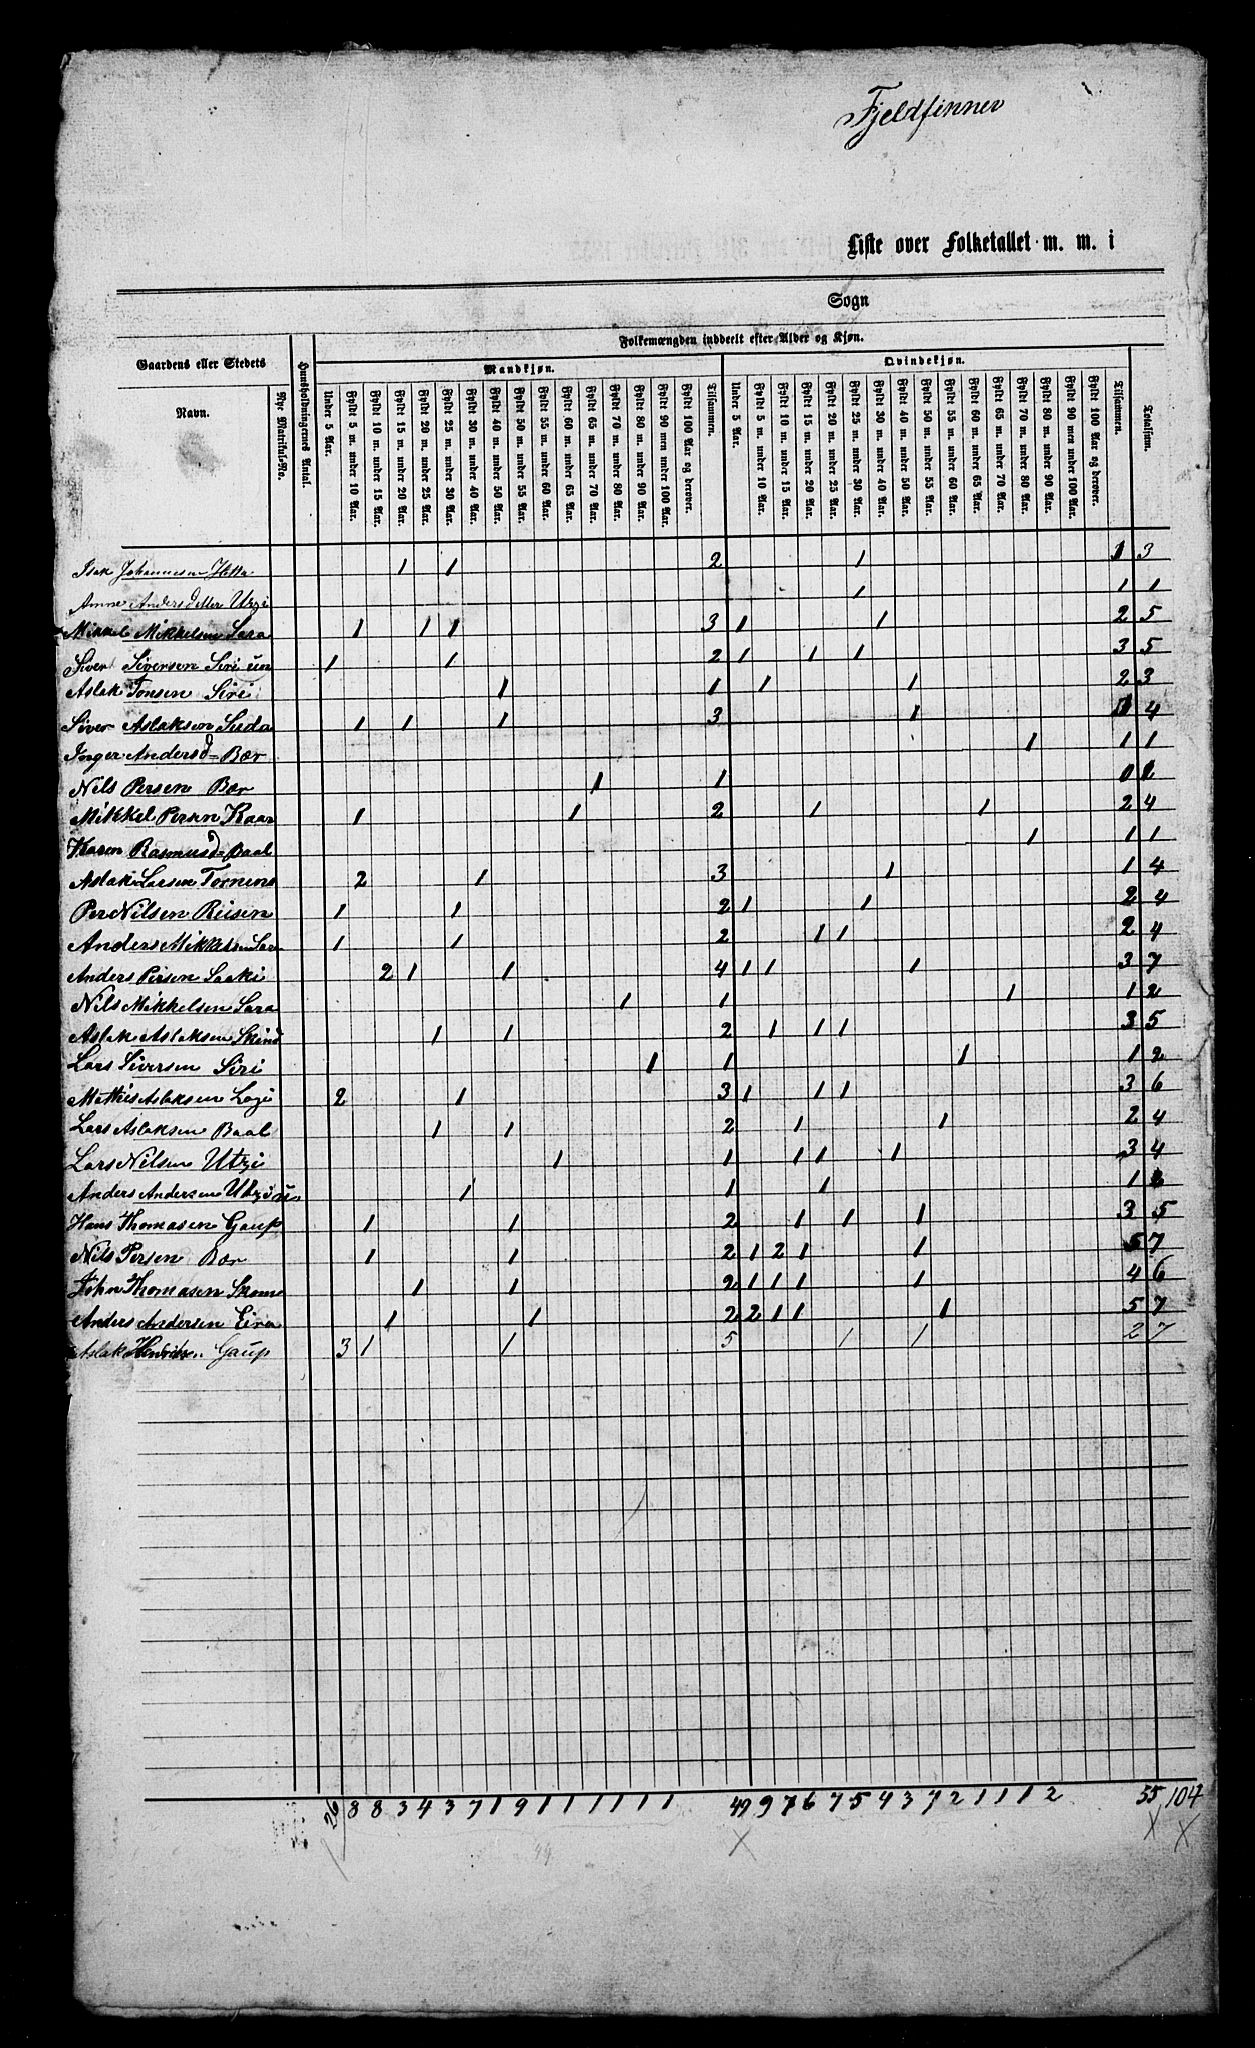 Fjeldfinner
Liste over Folketallet m. m. i
Sogn
Folkemængden inddeelt efter Alder og Kjøn.
Gaardens eller Stedets
Mandkjøn.
Qvindekjøn.
Navn.
Nye Matrikul-No.
Huusholdningernes Antal.
Under 5 Aar.
Fyldt 5 m. under 10 Aar.
Fyldt 10 m. under 15 Aar.
Fyldt 15 m. under 20 Aar.
Fyldt 20 m. under 25 Aar.
Fyldt 25 m. under 30 Aar.
Fyldt 30 m. under 40 Aar.
Fyldt 40 m. under 50 Aar.
Fyldt 50 m. under 55 Aar.
Fyldt 55 m. under 60 Aar.
Fyldt 60 m. under 65 Aar.
Fyldt 65 m. under 70 Aar.
Fyldt 70 m. under 80 Aar.
Fyldt 80 m. under 90 Aar.
Fyldt 90 men under 100 Aar.
Fyldt 100 Aar og derover.
Tilsammen.
Under 5 Aar.
Fyldt 5 m. under 10 Aar.
Fyldt 10 m. under 15 Aar.
Fyldt 15 m. under 20 Aar.
Fyldt 20 m. under 25 Aar.
Fyldt 25 m. under 30 Aar.
Fyldt 30 m. under 40 Aar.
Fyldt 40 m. under 50 Aar.
Fyldt 50 m. under 55 Aar.
Fyldt 55 m. under 60 Aar.
Fyldt 60 m. under 65 Aar.
Fyldt 65 m. under 70 Aar.
Fyldt 70 m. under 80 Aar.
Fyldt 80 m. under 90 Aar.
Fyldt 90 men under 100 Aar.
Fyldt 100 Aar og derover.
Tilsammen.
Totalsum.
Isak Johannesen Hetta 1 1 2 1 1 3
Anne Andersdatter Utzi 1 1 1
Mikkel Mikkelsen Sara 1 1 1 3 1 1 2 5
Siver Siversen Siri 1 1 2 1 1 1 3 5
Aslak Jonsen Siri 1 1 1 1 2 3
Siver Aslaksen Suda 1 1 1 3 1 1 4
Inger Andersd Bær 1 1 1
Nils Persen Bær 1 1 0 1
Mikkel Persen Kaar 1 1 2 1 1 2 4
Karen Rasmusd Baal 1 1 1
Aslak Larsen Tornens 2 1 3 1 1 4
Per Nilsen Reisen 1 1 2 1 1 2 4
Anders Mikkelsen Sara 1 1 2 1 1 2 4
Anders Persen Saaki 2 1 1 4 1 1 1 3 7
Nils Mikkelsen Sara 1 1 1 1 2
Aslak Aslaksen Skind 1 1 2 1 1 1 3 5
Lars Siversen Siri 1 1 1 1 2
Mathis Aslaksen Logi 2 1 3 1 1 1 3 6
Lars Aslaksen Baal 1 1 2 1 1 2 4
Lars Nilsen Utzi 1 1 1 1 1 3 4
Anders Andersen Utzi 1 1 1 1 2
Hans Thomasen Gaup 1 1 2 1 1 1 3 5
Nils Persen Bær 1 1 2 1 2 1 1 5 7
John Thomasen Skum 1 1 2 1 1 1 1 4 6
Anders Andersen Eira 1 1 2 2 1 1 1 5 7
Aslak Henriksen Gaup 3 1 1 5 1 1 2 7
26 8 8 3 4 3 7 1 9 1 1 1 1 1 1 49 9 7 6 7 5 4 3 7 2 1 1 1 2 55 104